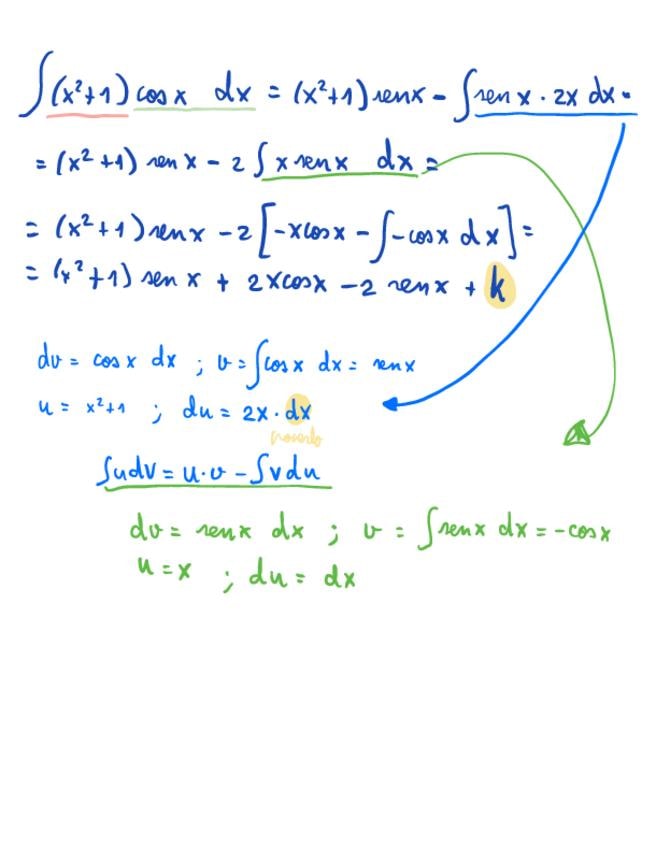 ∫(x²+1) cos x dx = (x²+1) sen x - ∫sen x · 2x dx =
= (x²+1) sen x - 2 ∫ x sen x dx =
= (x²+1) sen x - 2 [-x cos x - ∫-cos x dx] =
= (x²+1) sen x + 2x cos x - 2 sen x + k
dv = cos x dx ; v = ∫cos x dx = sen x
u = x²+1 ; du = 2x · dx
∫udv = u·v - ∫vdu
dv = sen x dx ; v = ∫sen x dx = -cos x
u = x ; du = dx